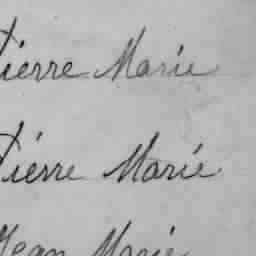 Pierre Marie
Piérre Marié
Jean Marie